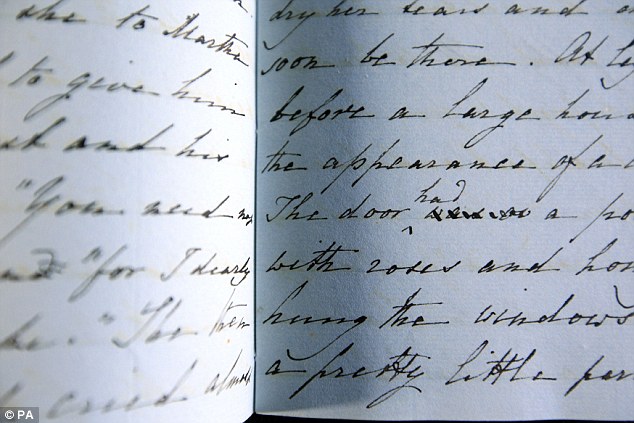 she to Martha
to give him
and his
"You need
"for I dearly
be." The then
cried almost
dry her tears and
soon be there. At
before a large hou
the appearance of a
had
The door a po
with roses and hon
hung the windows
a pretty little par
© PA